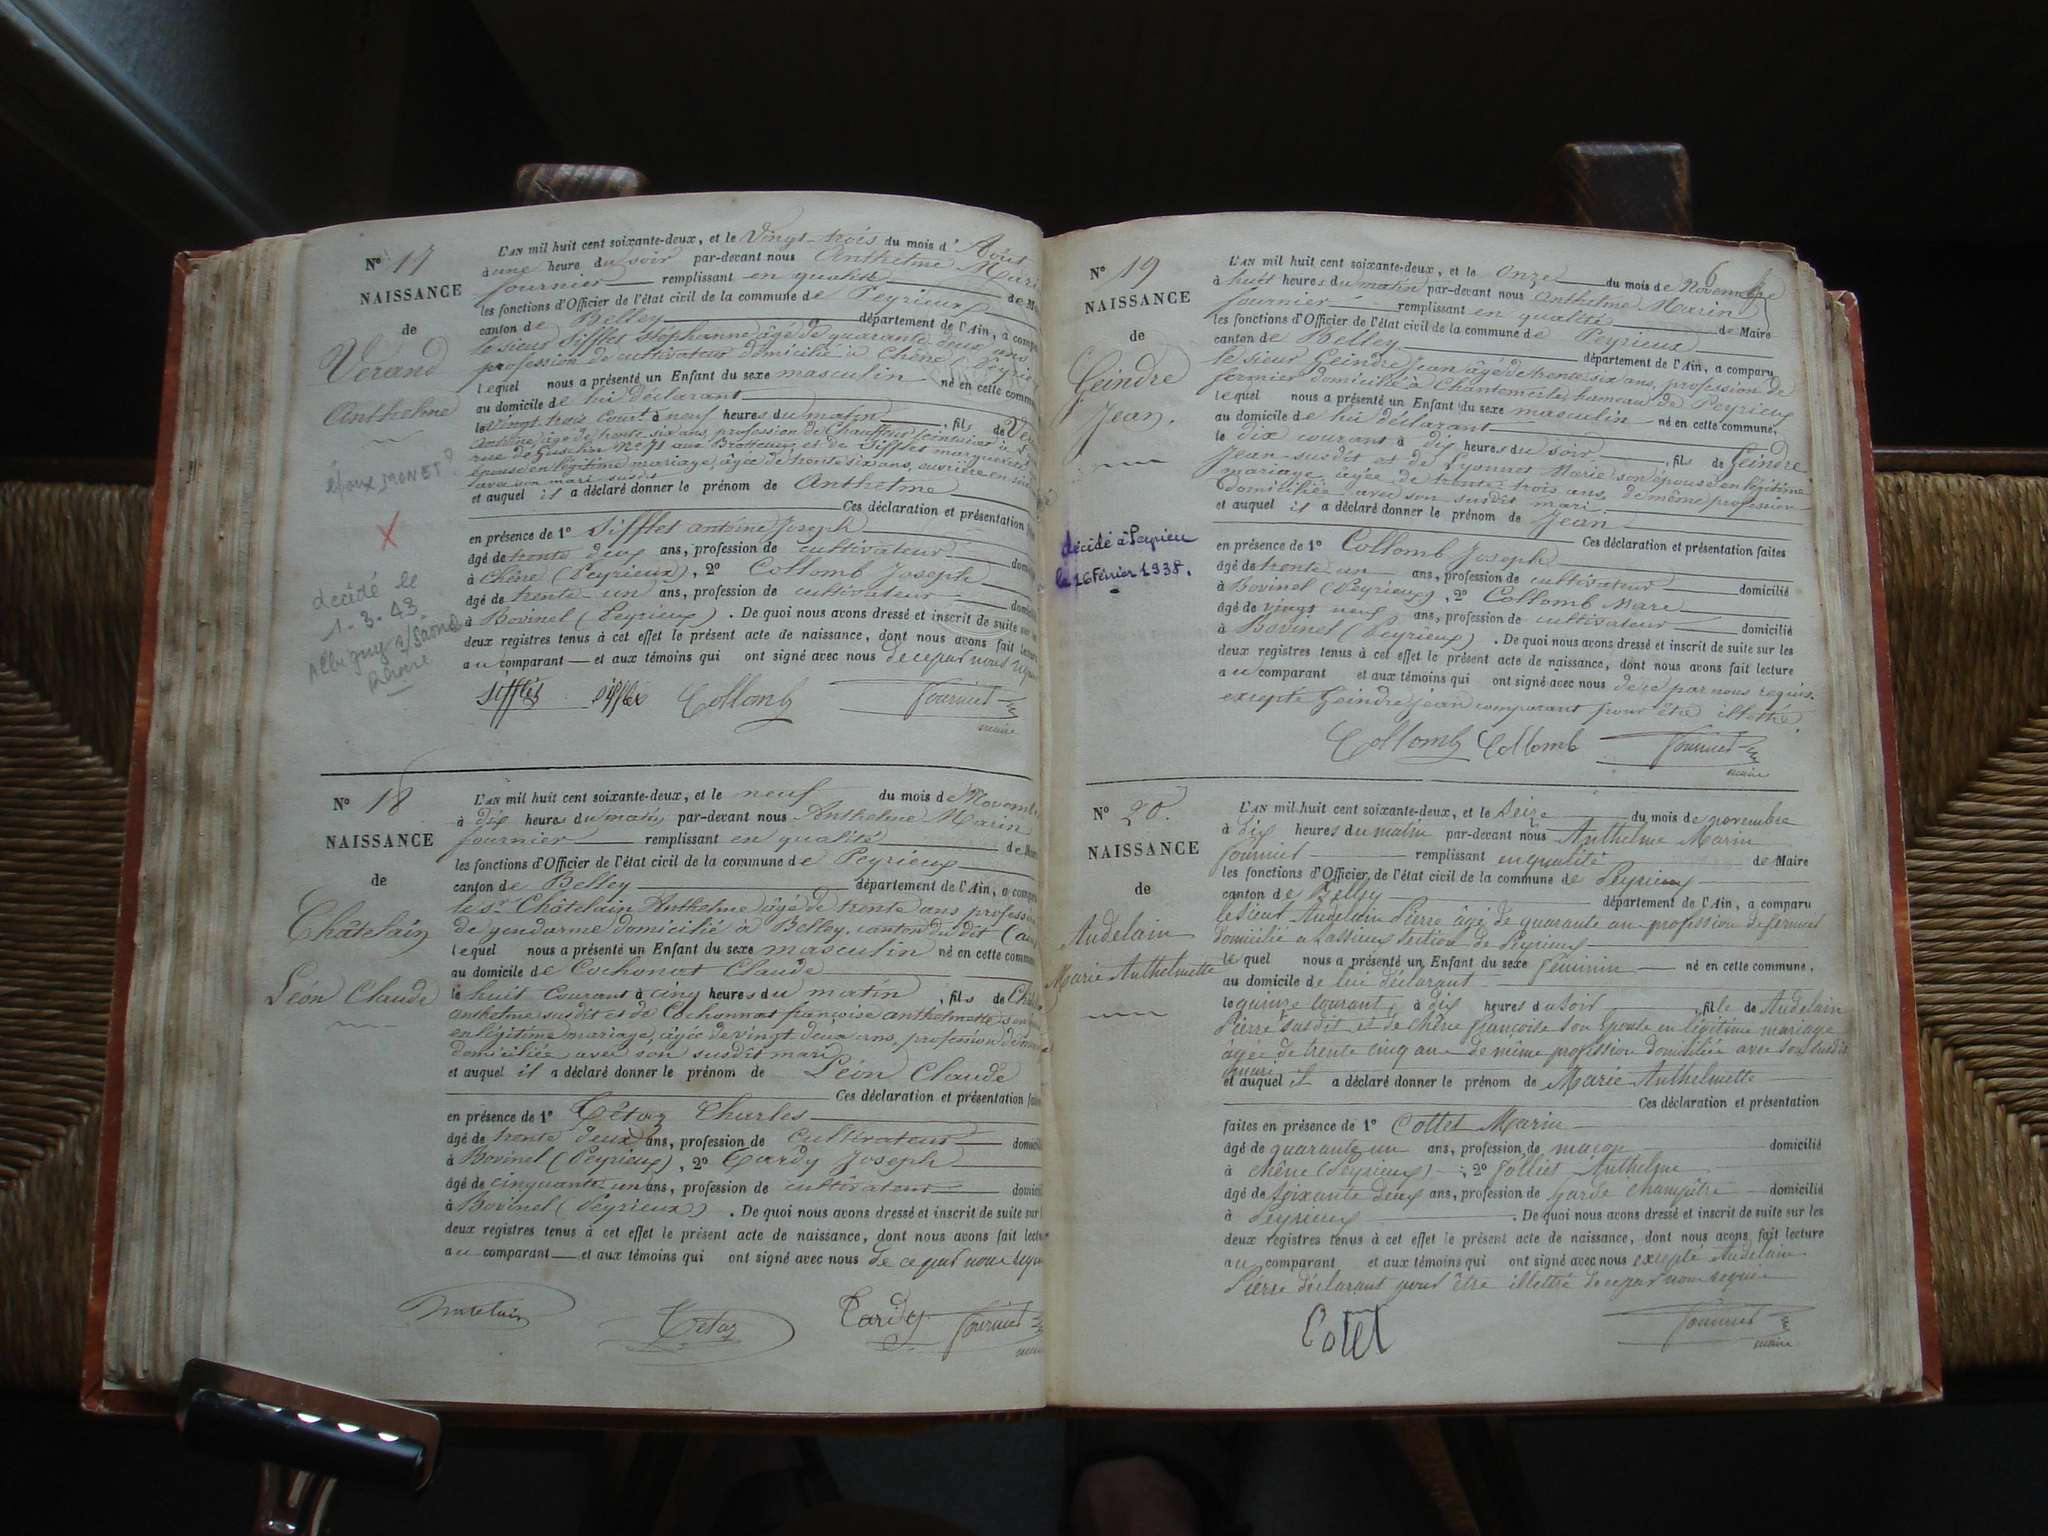 N° 17
NAISSANCE
de
Verand
Anthelme
époux MONET ?
X
décédé le
1-3-43
Albigny s/Saône
Rhône
L'AN mil huit cent soixante-deux, et le Vingt-trois du mois d'Août
à une heure du soir par-devant nous Anthelme Marin
fournier remplissant en qualité de Mai
les fonctions d'Officier de l'état civil de la commune de Peyrieux
canton de Belley département de l'Ain, a compa
le sieur Sifflet Stéphanne âgé de quarante deux ans
profession de cultivateur domicilié à Chêne (Peyrie
lequel nous a présenté un Enfant du sexe masculin né en cette commune
au domicile de lui déclarant
le vingt trois cour.t à neuf heures du matin, fils de Vér
Anthelme âgé de trente six ans, profession de Chauffeur
rue de N° 71 aux Brotteaux et de Sifflet marguerite
épouse en légitime mariage, âgée de trente six ans, ouvrière en soie
avec son mari susdit
et auquel il a déclaré donner le prénom de Anthelme
Ces déclaration et présentation
en présence de 1° Sifflet antoine Joseph
âgé de trente deux ans, profession de cultivateur domi
à Chêne (Peyrieux), 2° Collomb Joseph
âgé de trente-un ans, profession de cultivateur domicilié
à Bovinel (Peyrieux). De quoi nous avons dressé et inscrit de suite sur
deux registres tenus à cet effet le présent acte de naissance, dont nous avons fait lecture
au comparant et aux témoins qui ont signé avec nous de ce par nous requis
Sifflet Sifflet Collomb Fournier
maire
N° 18
NAISSANCE
de
Châtelain
Léon Claude
L'AN mil huit cent soixante-deux, et le neuf du mois de Novembre
à dix heures du matin, par-devant nous Anthelme Marin
fournier remplissant en qualité de Maire
les fonctions d'Officier de l'état civil de la commune de Peyrieux
canton de Belley département de l'Ain, a compa
le sr Châtelain Anthelme âgé de trente ans profession
de gendarme domicilié à Belley, canton du dit (ain)
lequel nous a présenté un Enfant du sexe masculin né en cette commune
au domicile de Cochonat Claude
le huit Courant à cinq heures du matin, fils de Châte
anthelme susdit et de Cochonnat françoise anthelmette son
en légitime mariage, âgée de vingt deux ans, profession de
domiciliée avec son susdit mari
et auquel il a déclaré donner le prénom de Léon Claude
Ces déclaration et présentation faites
en présence de 1° Tétaz Charles
âgé de trente deux ans, profession de cultivateur domicilié
à Bovinel (Peyrieux), 2° Tardy Joseph
âgé de cinquante un ans, profession de cultivateur domici
à Bovinel (Peyrieux). De quoi nous avons dressé et inscrit de suite sur
deux registres tenus à cet effet le présent acte de naissance, dont nous avons fait lecture
au comparant et aux témoins qui ont signé avec nous de ce par nous requis
Chatelain Tetaz Tardy Fournier
maire
6
N° 19
NAISSANCE
de
Geindre
Jean.
décédé à Peyrieu
le 16 Février 1938.
L'AN mil huit cent soixante-deux, et le Onze du mois de Novembre
à huit heures du matin par-devant nous Anthelme Marin
fournier remplissant en qualité de Maire
les fonctions d'Officier de l'état civil de la commune de Peyrieux
canton de Belley département de l'Ain, a comparu
le sieur Geindre Jean âgé de trente-six ans, profession de
fermier domicilié à Chantemerle, hameau de Peyrieux
lequel nous a présenté un Enfant du sexe masculin né en cette commune,
au domicile de lui déclarant
le dix courant à dix heures du soir, fils de Geindre
Jean susdit et de Lyonnet Marie son épouse en légitime
mariage, âgée de trente-trois ans, de même profession
domiciliée avec son susdit mari
et auquel il a déclaré donner le prénom de Jean
Ces déclaration et présentation faites
en présence de 1° Collomb Joseph
âgé de trente un ans, profession de cultivateur domicilié
à Bovinel (Peyrieux), 2° Collomb Marc
âgé de vingt neuf ans, profession de cultivateur domicilié
à Bovinel (Peyrieux). De quoi nous avons dressé et inscrit de suite sur les
deux registres tenus à cet effet le présent acte de naissance, dont nous avons fait lecture
au comparant et aux témoins qui ont signé avec nous de ce par nous requis.
excepté Geindre Jean comparant pour être illettré.
Collomb Collomb Fournier
maire
N° 20.
NAISSANCE
de
Audelain
Marie Anthelmette
L'AN mil huit cent soixante-deux, et le Seize du mois de novembre
à dix heures du matin par-devant nous Anthelme Marin
fournier remplissant en qualité de Maire
les fonctions d'Officier de l'état civil de la commune de Peyrieux
canton de Belley département de l'Ain, a comparu
le sieur Audelain Pierre âgé de quarante an profession de fermier
domicilié a Lassieux section de Peyrieux
lequel nous a présenté un Enfant du sexe féminin né en cette commune,
au domicile de lui déclarant
le quinze courant à dix heures du soir, fille de Audelain
Pierre susdit et de Chêne françoise son épouse en légitime mariage
âgée de trente cinq ans de même profession domiciliée avec son susdit
mari
et auquel il a déclaré donner le prénom de Marie Anthelmette
Ces déclaration et présentation
faites en présence de 1° Cottet Marin
âgé de quarante un ans, profession de maçon domicilié
à Chêne (Peyrieux), 2° Follies Anthelme
âgé de soixante deux ans, profession de Garde Champêtre domicilié
à Peyrieux. De quoi nous avons dressé et inscrit de suite sur les
deux registres tenus à cet effet le présent acte de naissance, dont nous avons fait lecture
au comparant et aux témoins qui ont signé avec nous excepté Audelain
Pierre déclarant pour être illettré de ce par nous requis
Cotet Fournier
maire